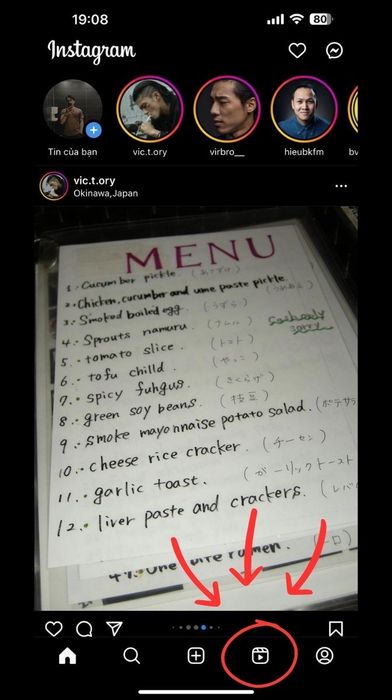 19:08
80
Instagram
Tin của bạn
vic.t.ory
virbro__
hieubkfm
bv
vic.t.ory
Okinawa,Japan
MENU
1. Cucumber pickle.
2. Chicken, cucumber and ume paste pickle.
3. Smoked boiled egg. (うずら)
4. Sprouts namuru. (ナムル)
5. tomato slice. (トマト)
6. tofu chilld. (やっこ)
7. spicy fuhgus. (きくらげ)
8. green soy beans. (枝豆)
9. smoke mayonnaise potato salad. (ポテサラ
10. cheese rice cracker. (チーセン)
11. garlic toast. (ガーリックトースト
12. liver paste and crackers. (レバ
49. One bite ramen. (一口)